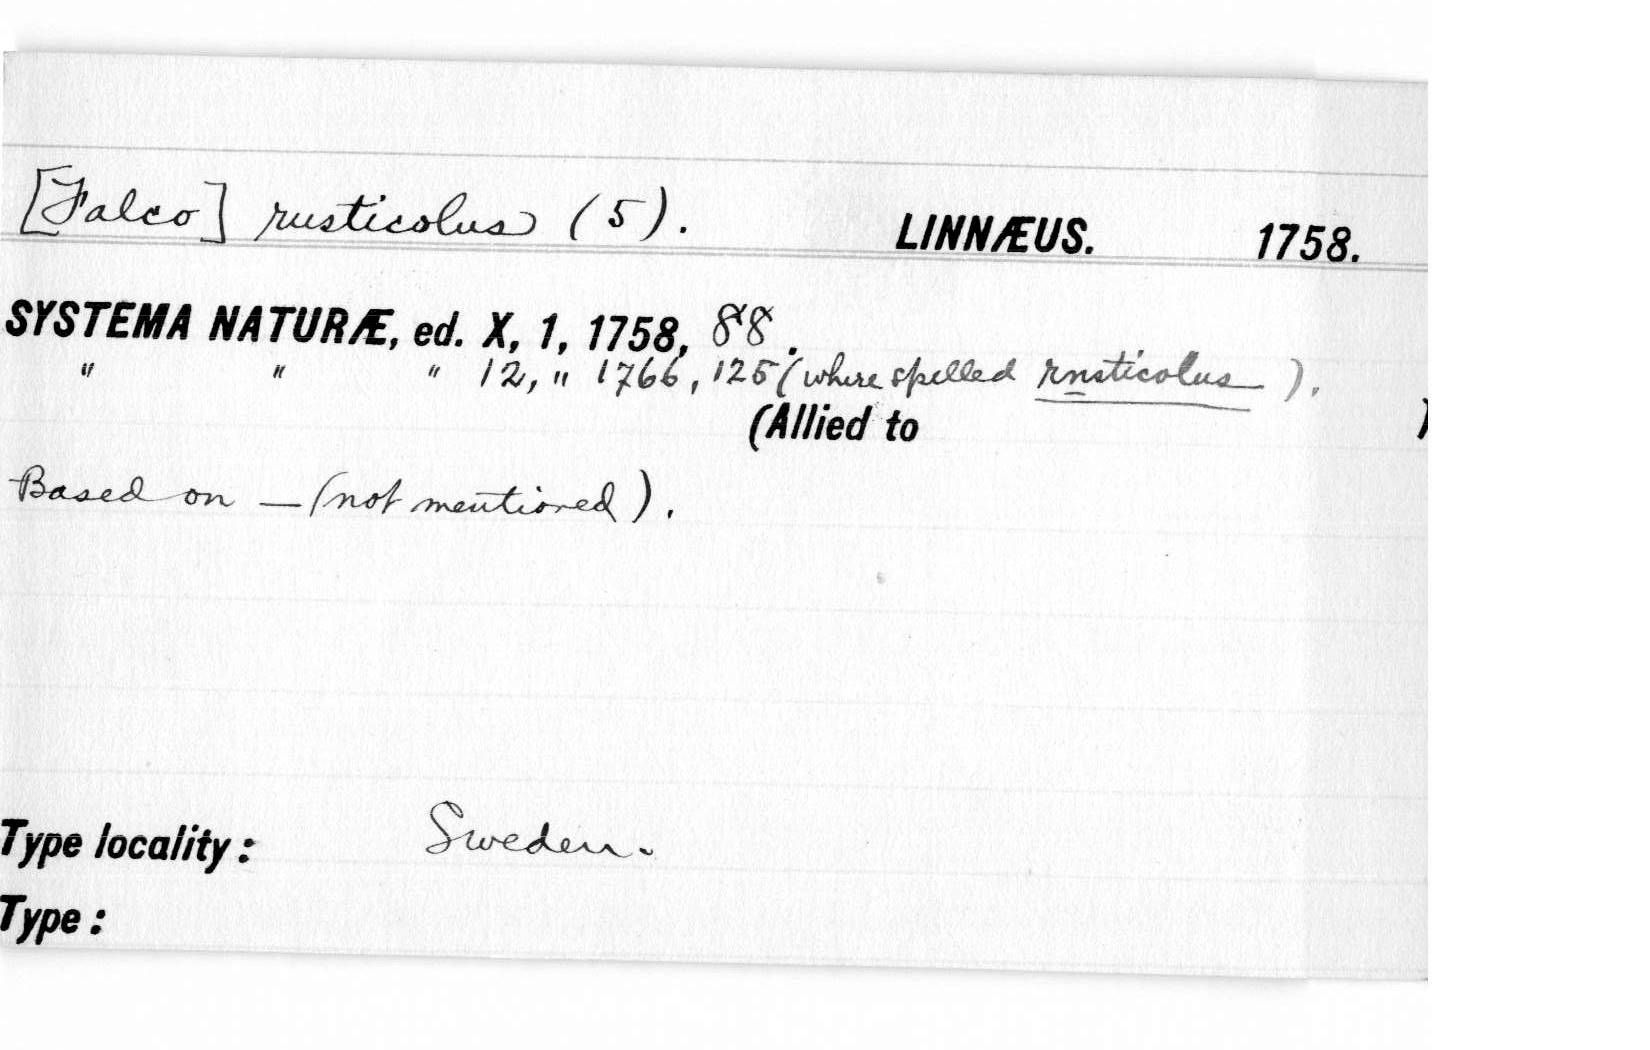 [Falco] rusticolus (5). LINNÆUS. 1758.
SYSTEMA NATURÆ, ed. X, 1, 1758, 88.
" " " 12, " 1766, 125 (where spelled rnsticolus).
(Allied to )
Based on — (not mentioned).
Type locality: Sweden.
Type: